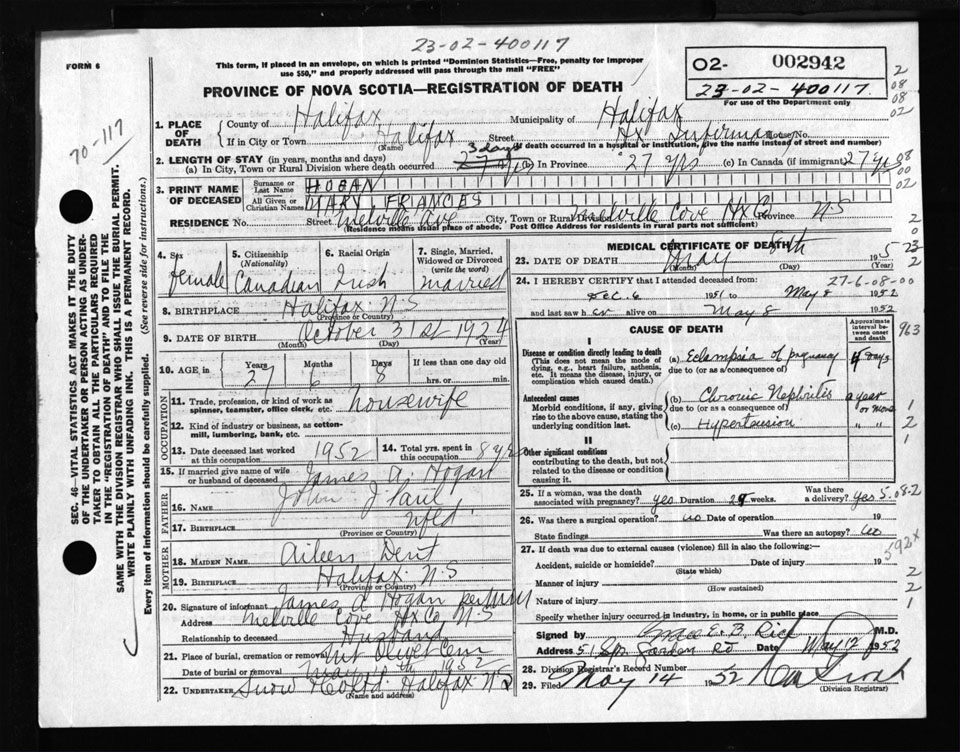 23-02-400117
FORM 6
This form, if placed in an envelope, on which is printed "Dominion Statistics—Free, penalty for improper use $50," and properly addressed will pass through the mail "FREE"
02- 002942
23-02-400117.
For use of the Department only
PROVINCE OF NOVA SCOTIA—REGISTRATION OF DEATH
70-117
SEC. 46—VITAL STATISTICS ACT MAKES IT THE DUTY OF THE UNDERTAKER OR PERSON ACTING AS UNDERTAKER TO OBTAIN ALL THE PARTICULARS REQUIRED IN THE "REGISTRATION OF DEATH" AND TO FILE THE SAME WITH THE DIVISION REGISTRAR WHO SHALL ISSUE THE BURIAL PERMIT.
WRITE PLAINLY WITH UNFADING INK. THIS IS A PERMANENT RECORD.
Every item of information should be carefully supplied. (See reverse side for instructions.)
1. PLACE OF DEATH
County of Halifax Municipality of Halifax
If in City or Town Halifax Street Hx Infirmary House No.
(Name) (If death occurred in a hospital or institution, give the name instead of street and number)
2. LENGTH OF STAY (in years, months and days)
(a) In City, Town or Rural Division where death occurred 3 days 27 yrs (b) In Province 27 yrs (c) In Canada (if immigrant) 27 yrs
3. PRINT NAME OF DECEASED
Surname or Last Name HOGAN
All Given or Christian Names MARY FRANCES
RESIDENCE No. Street Melville Ave City, Town or Rural Division Melville Cove Hx Co N-S
(Residence means usual place of abode. Post Office Address for residents in rural parts not sufficient)
4. Sex female
5. Citizenship (Nationality) Canadian
6. Racial Origin Irish
7. Single, Married, Widowed or Divorced (write the word) married
8. BIRTHPLACE Halifax N-S
(Province or Country)
9. DATE OF BIRTH October 31st 1924
(Month) (Day) (Year)
10. AGE in Years 27 Months 6 Days 8 If less than one day old hrs. or min.
OCCUPATION
11. Trade, profession, or kind of work as spinner, teamster, office clerk, etc. housewife
12. Kind of industry or business, as cotton-mill, lumbering, bank, etc.
13. Date deceased last worked at this occupation 1952 14. Total yrs. spent in this occupation 8 yrs
15. If married give name of wife or husband of deceased James A Hogan
FATHER
16. Name John J Paul
17. Birthplace Nfld.
(Province or Country)
MOTHER
18. Maiden Name Aileen Dent
19. Birthplace Halifax N-S
(Province or Country)
20. Signature of informant James A Hogan
Address Melville Cove Hx Co. N-S
Relationship to deceased Husband
21. Place of burial, cremation or removal Mt Olivet Cem
Date of burial or removal May 1952
22. Undertaker Snow & Co Ltd. Halifax N-S
(Name and address)
MEDICAL CERTIFICATE OF DEATH
23. DATE OF DEATH May 8th 195
(Month) (Day) (Year)
27-6-08-00
24. I HEREBY CERTIFY that I attended deceased from:
Dec. 6 1951 to May 8 1952
and last saw her alive on May 8 1952
CAUSE OF DEATH
Approximate interval between onset and death
963
I
Disease or condition directly leading to death
(This does not mean the mode of dying, e.g., heart failure, asthenia, etc. It means the disease, injury, or complication which caused death.)
(a) Eclampsia of pregnancy 4 days
due to (or as a consequence of)
Antecedent causes
Morbid conditions, if any, giving rise to the above cause, stating the underlying condition last.
(b) Chronic Nephritis a year or more
due to (or as a consequence of)
(c) Hypertension " "
II
Other significant conditions
contributing to the death, but not related to the disease or condition causing it.
25. If a woman, was the death associated with pregnancy? yes Duration 29 weeks. Was there a delivery? Yes
26. Was there a surgical operation? no Date of operation 19
State findings Was there an autopsy? no
27. If death was due to external causes (violence) fill in also the following:—
592x
Accident, suicide or homicide? Date of injury 19
(State which)
Manner of injury
(How sustained)
Nature of injury
Specify whether injury occurred in industry, in home, or in public place
Signed by E. B. Rick M.D.
Address 51 Spr. Garden Rd Date May 12 1952
28. Division Registrar's Record Number
29. Filed May 14 1952
(Division Registrar)